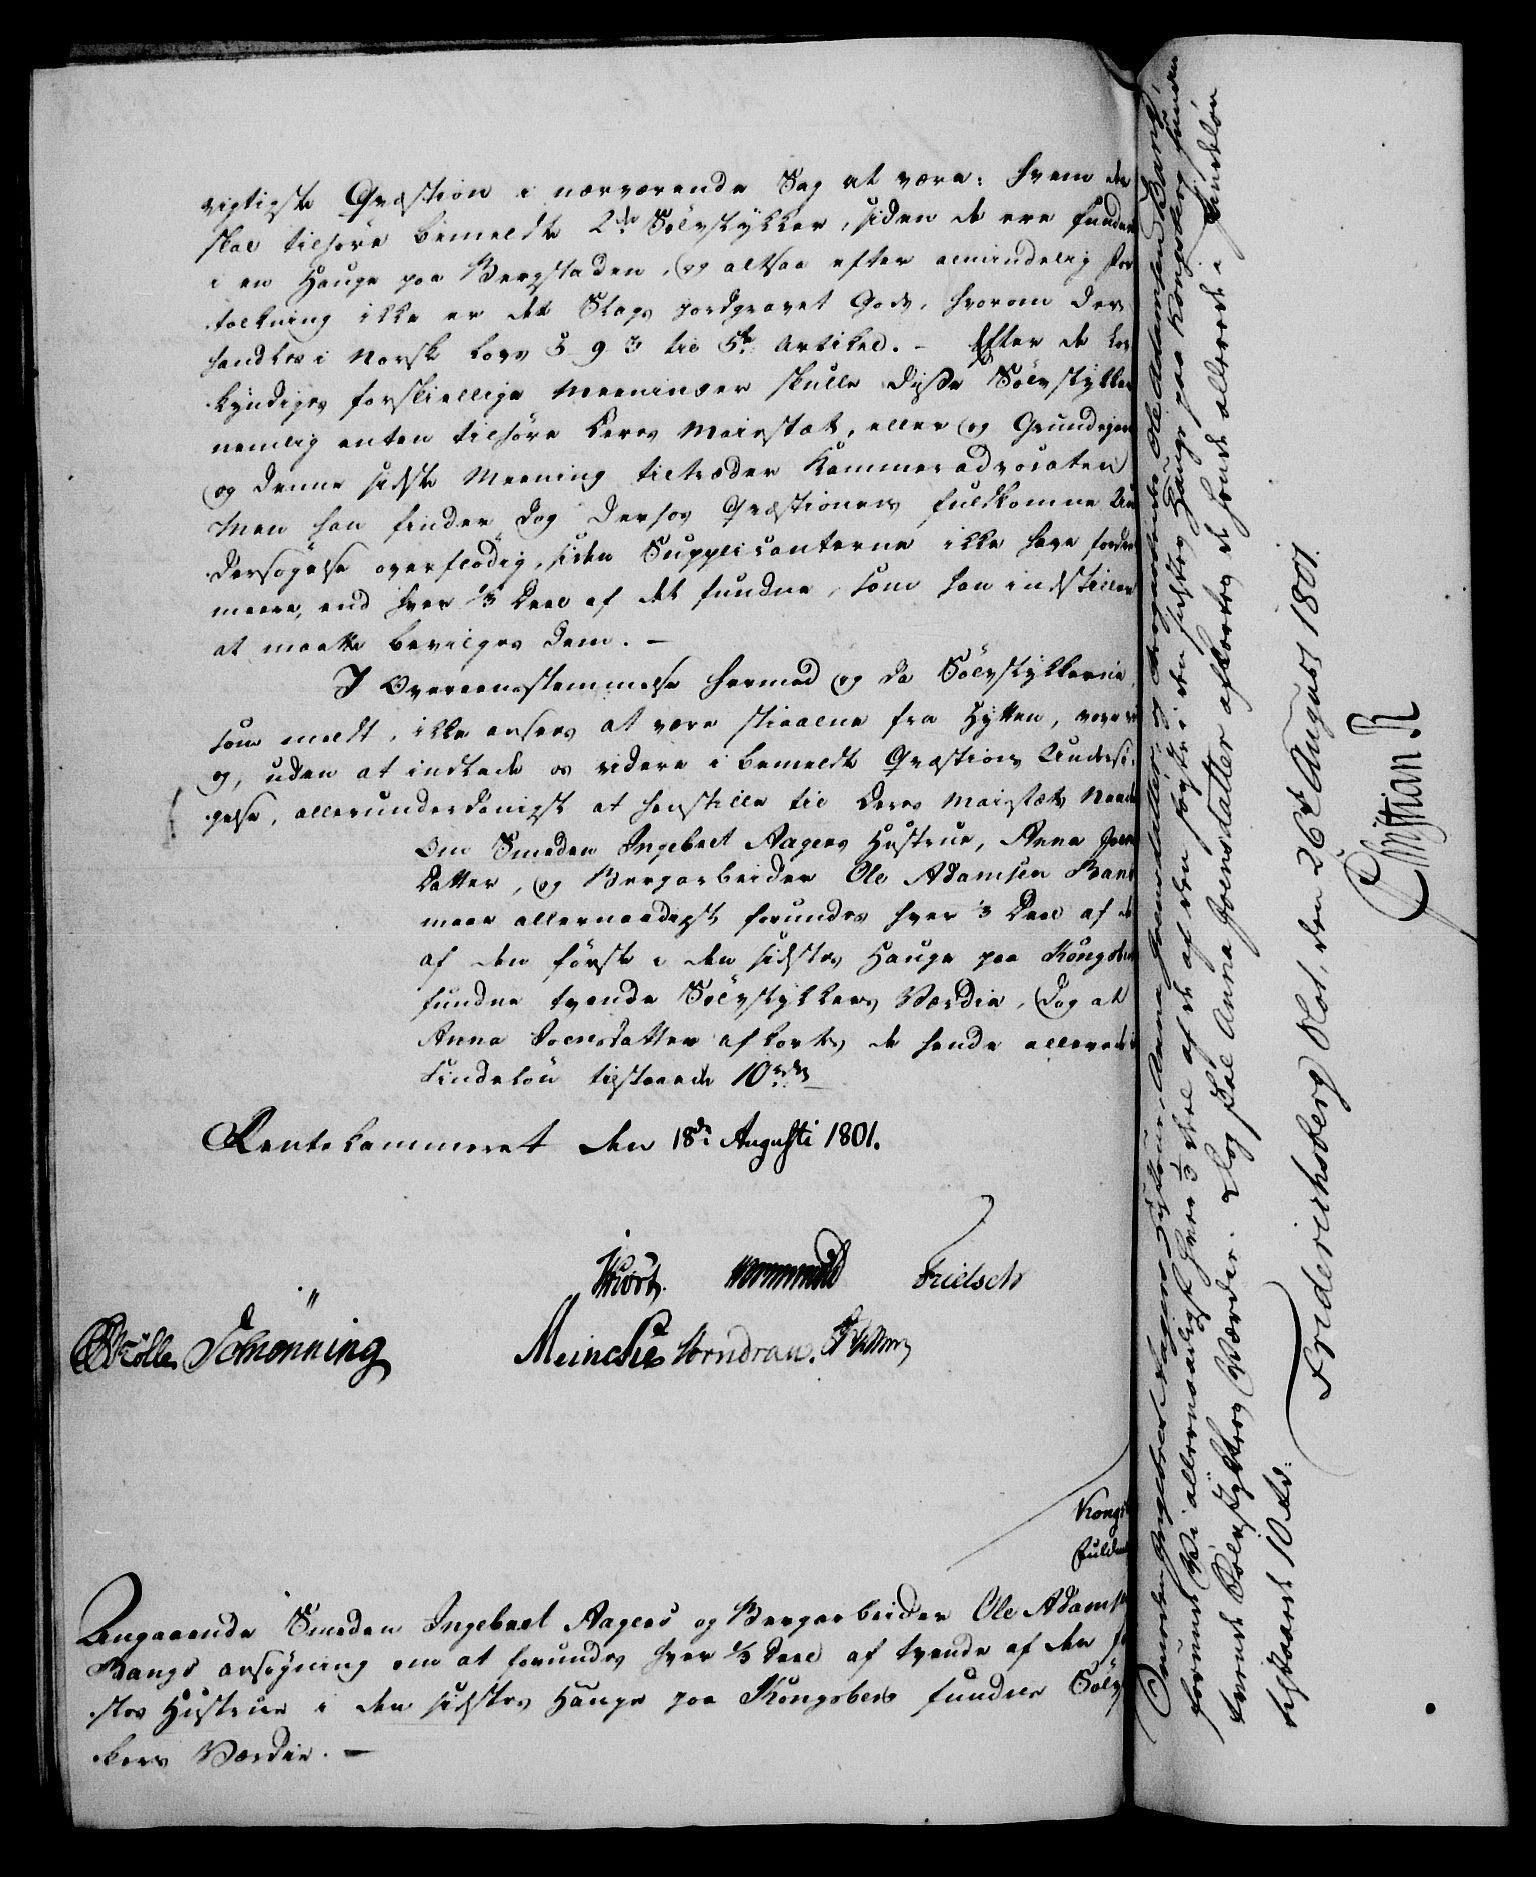 vigtigste Qvæstion i nærværende Sag at være: hvem der
skal tilhøre bemeldte 2de Sölvstykker, siden de ere funden
i en Hauge paa Bergstaden, og altsaa efter almindelig For
tolkning ikke er det Slags jordgravet Gods, hvorom der
handles i Norske Lovs 5 9 3 til 5te Artikel. - Efter de Lov
kyndiges forskiellige Meeninger skulle disse Sölvstykker
nemlig enten tilhöre Deres Maiestæt, eller og Grundejeren
og denne sidste Meening tiltræder Kammeradvocaten
Men han finder dog denne Qvæstions fuldkomne Un
dersögelse overflödig, siden Supplicanterne ikke have fordret
meere, end hver 1/3 Deel af det fundne, som han indstiller
at maatte bevilges dem. —
I Overeensstemmelse hermed og da Sölvstykkerne,
som meldt, ikke ansees at være stiaalne fra Hytten, vove vi
og, uden at indlade os videre i bemeldte Qvæstions Undersö-
gelse, allerunderdanigst at henstille til Deres Maiestæts Naade
Om Smeden Ingebret Aagers Hustrue, Anna Joens
Datter, og Bergarbeider Ole Adamsen Bang
maae allernaadigst forundes hver 1/3 Deel af de
af den förste i den sidstes Hauge paa Kongsberg
fundne tvende Sölvstykkers Værdie, dog at
Anna Joensdatter afkortes de hende allerede i
Findelön tilstaaede 10 rd
Rentekammeret den 18de Augusti 1801.
Frielsch
Schönning
Meincke Vorndran.
Kongs
fuld
Angaaende Smeden Ingebret Aagers og Bergarbeider Ole Adams
Bangs ansögning om at forundes hver 1/3 Deel af tvende af den
stes Hustrue i den sidstes Hauge paa Kongsberg fundne Sölv
kers Værdie. —
Smeden Ingebret Aagers Hustrue, Anna Joensdatter, og Bergarbeider Ole Adamsen Bang,
forunde Vi allernaadigst hver 1/3 Deel af de af den förste i den sidstes Hauge paa Kongsberg fundne
tvende Sölvstykkers Værdie. Dog skal Anna Joensdatter afkortes de hende allerede i Findelön
tilstaaede 10 rd.
Friderichsberg Slot, den 26de August 1801.
Christian R